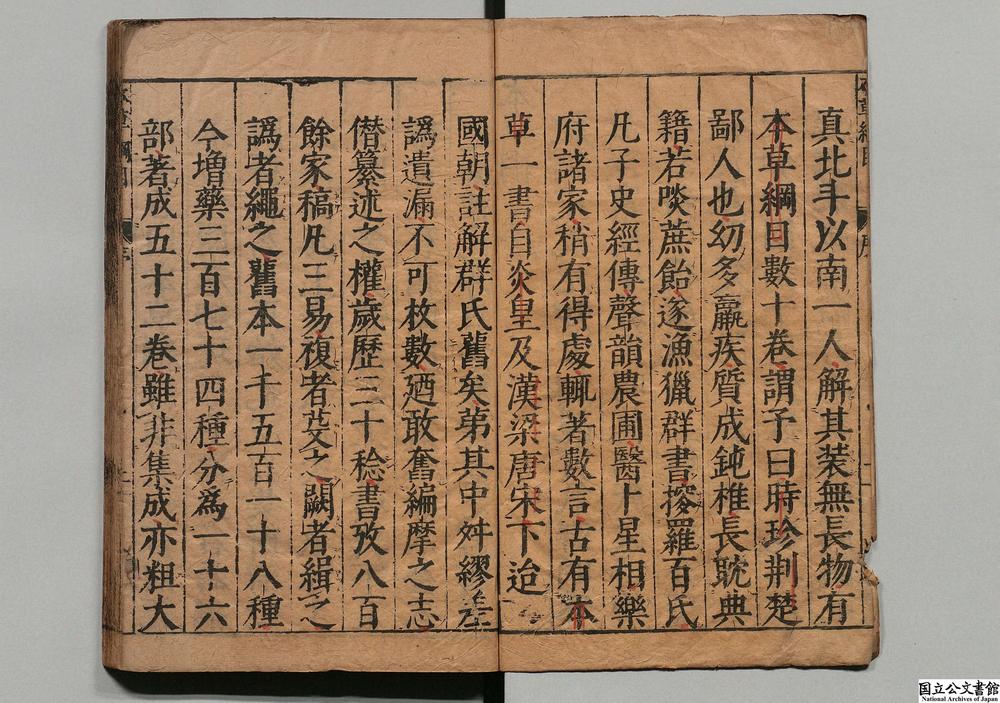 真北斗以南一人解其装無長物有
本草綱目數十卷謂予曰時珍荆楚
鄙人也幼多羸疾質成鈍椎長耽典
籍若啖蔗飴遂漁獵群書搜羅百氏
凡子史經傳聲韻農圃醫卜星相樂
府諸家稍有得處輒著數言古有本
草一書自炎皇及漢梁唐宋下迨
國朝註解群氏舊矣第其中舛繆差
譌遺漏不可枚數廼敢奮編摩之志
僭纂述之權歲歷三十稔書攷八百
餘家稿凡三易複者芟之闕者緝之
譌者繩之舊本一千五百一十八種
今增藥三百七十四種分爲一十六
部著成五十二卷雖非集成亦粗大
国立公文書館
National Archives of Japan